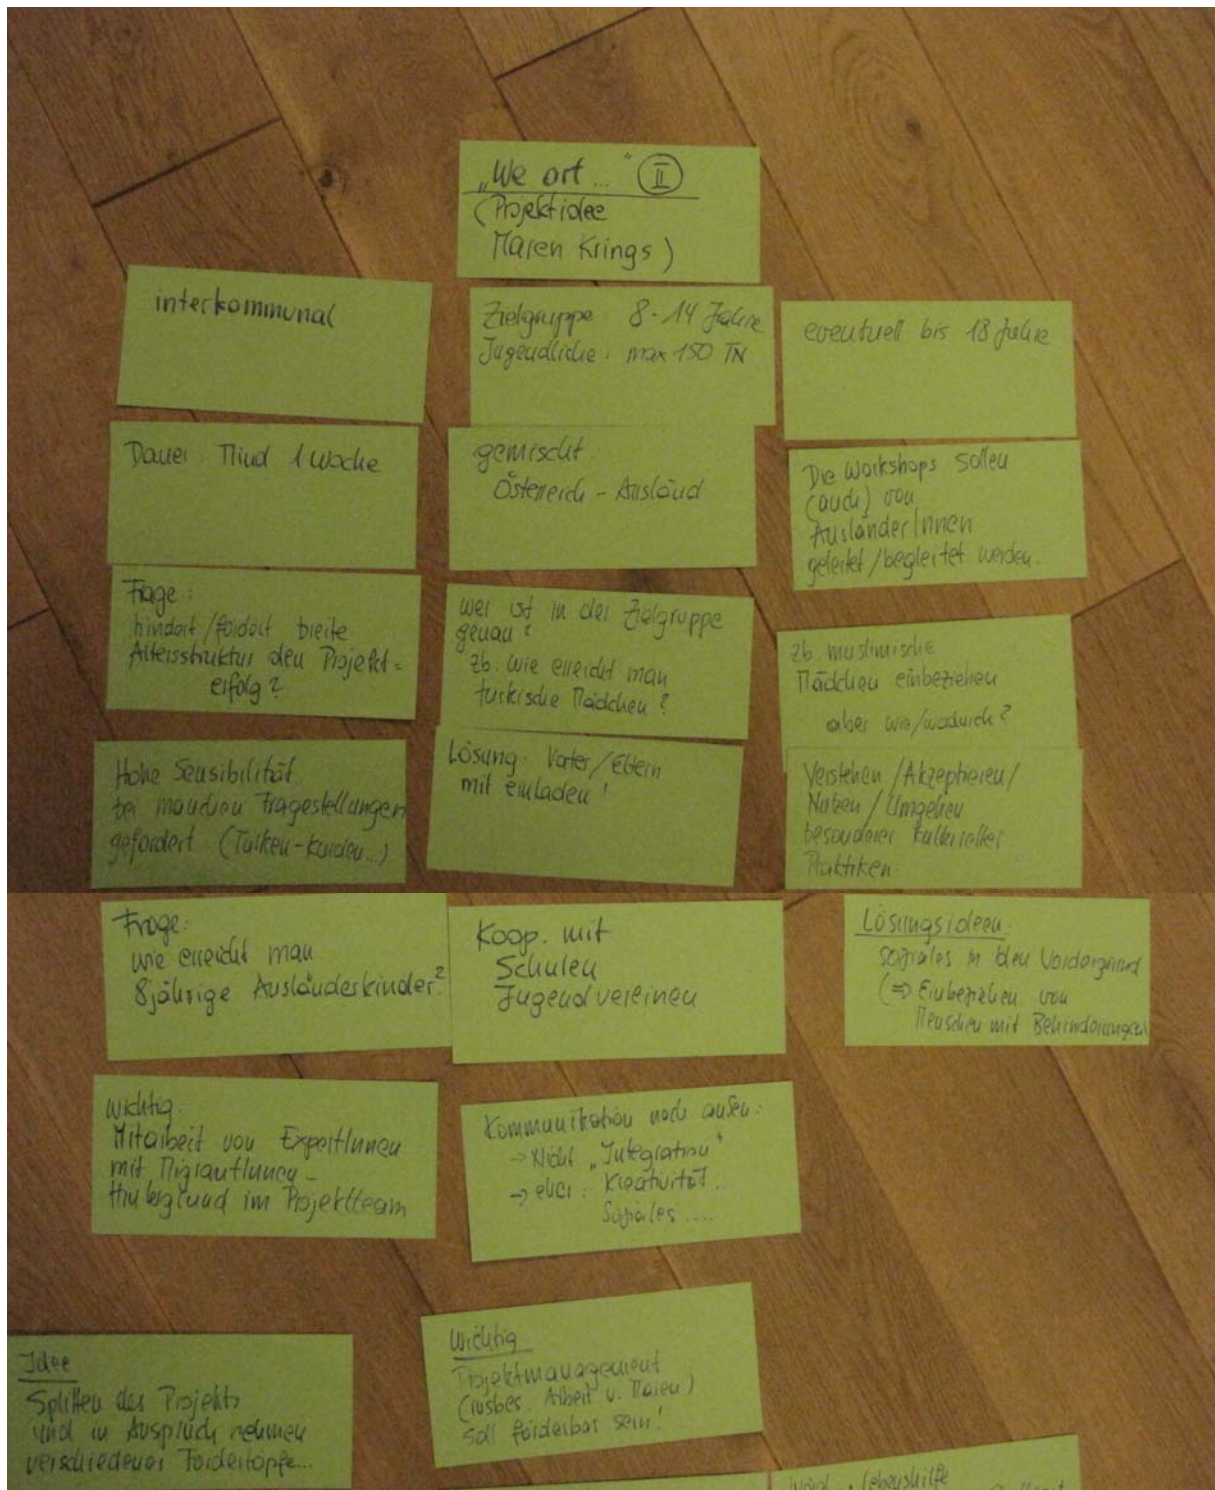 „We art..." II
(Projektidee
Maren Krings)
interkommunal
Zielgruppe 8-14 Jahre
Jugendliche: max 150 TN
eventuell bis 18 Jahre
Dauer: Mind 1 Woche
gemischt:
Österreich - Ausland
Die Workshops sollen
(auch) von
AusländerInnen
geleitet/begleitet werden.
Frage:
hindert/fördert breite
Altersstruktur den Projekt=
erfolg?
wer ist in der Zielgruppe
genau?
zb. wie erreicht man
türkische Mädchen?
zb. muslimische
Mädchen einbeziehen
aber wie/wodurch?
Hohe Sensibilität
bei manchen Fragestellungen
gefordert (Türken-Kurden...)
Lösung: Vater/Eltern
mit einladen!
Verstehen/Akzeptieren/
Nutzen/Umgehen
besonderer kultureller
Praktiken
Frage:
wie erreicht man
8jährige Ausländerkinder?
Koop. mit
Schulen
Jugendvereinen
Lösungsideen:
soziales in den Vordergrund
(=> Einbeziehen von
Menschen mit Behinderungen
Wichtig:
Mitarbeit von ExpertInnen
mit MigrantInnen-
Hintergrund im Projektteam
Kommunikation nach außen:
-> Nicht „Integration"
-> eher: Kreativität...
Soziales....
Idee
Splitten des Projekts
und in Anspruch nehmen
verschiedener Fördertöpfe...
Wichtig
Projektmanagement
(insbes. Arbeit v. Maren)
soll förderbar sein!
Lebenshilfe